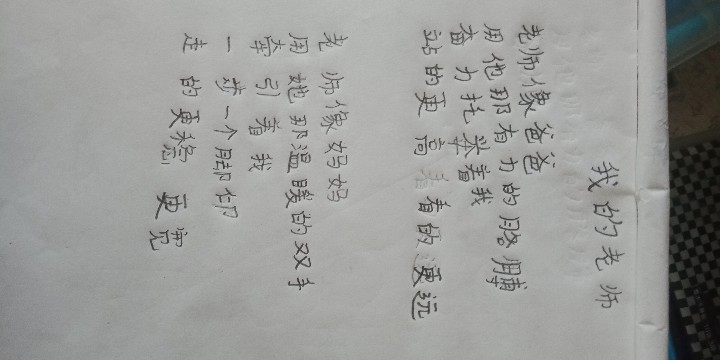 我的老师
老师像爸爸
用他那有力的胳膊
奋力托举着我
站的更高 看的更远
老师像妈妈
用她那温暖的双手
牵引着我
一步一个脚印
走的更稳 更宽